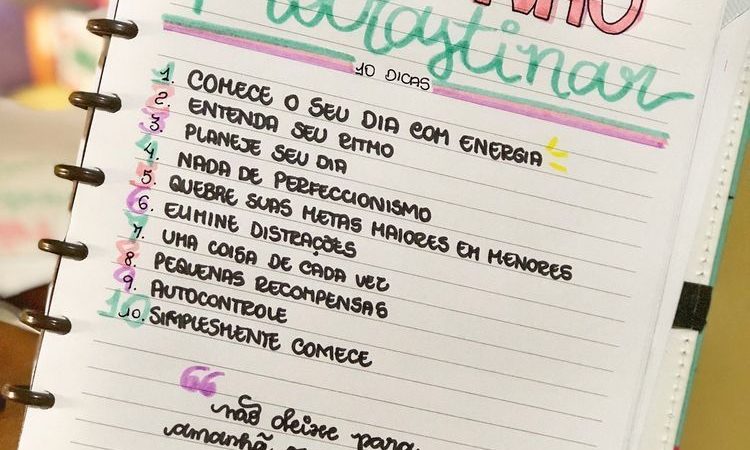 Procrastinar
10 DICAS
1. COMECE O SEU DIA COM ENERGIA
2. ENTENDA SEU RITMO
3. PLANEJE SEU DIA
4. NADA DE PERFECCIONISMO
5. QUEBRE SUAS METAS MAIORES EM MENORES
6. ELIMINE DISTRAÇÕES
7. UMA COISA DE CADA VEZ
8. PEQUENAS RECOMPENSAS
9. AUTOCONTROLE
10. SIMPLESMENTE COMECE
“ não deixe para
amanhã